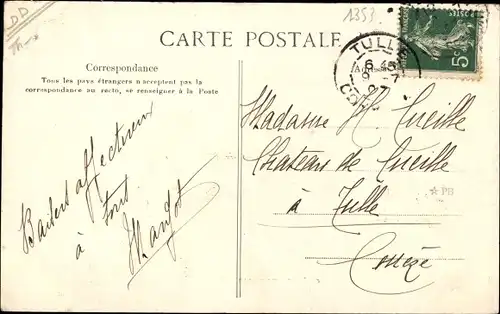 DD
1353
CARTE POSTALE
Correspondance
Tous les pays étrangers n'acceptent pas la
correspondance au recto, se renseigner à la Poste
TULLE
6 45
9 - 7
5c
Baisers affectueux
à tous
Margot
Madame H. Cueille
Chateau de Cueille
à Tulle
Corrèze
☆ PB